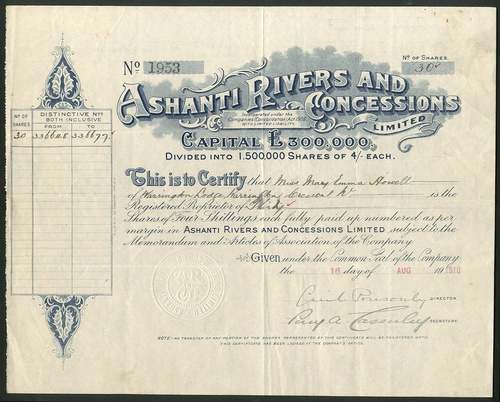 No 1953
No OF SHARES.
30
ASHANTI RIVERS AND
CONCESSIONS
LIMITED
Incorporated under the
Companies (Consolidation) Act 1908
WITH LIMITED LIABILITY.
CAPITAL £300,000,
DIVIDED INTO 1,500,000 SHARES OF 4/- EACH.
No OF SHARES
DISTINCTIVE Nos
BOTH INCLUSIVE
FROM TO
30
This is to Certify that Miss Mary Emma Howell
of Harrington Lodge Harrington Crescent is the
Registered Proprietor of Thirty
Shares of Four Shillings each fully paid up numbered as per
margin in ASHANTI RIVERS AND CONCESSIONS LIMITED subject to the
Memorandum and Articles of Association of the Company
Given under the Common Seal of the Company
the 16 day of AUG 1910
DIRECTOR.
SECRETARY.
NOTE:- NO TRANSFER OF ANY PORTION OF THE SHARES REPRESENTED BY THIS CERTIFICATE WILL BE REGISTERED UNTIL
THIS CERTIFICATE HAS BEEN LODGED AT THE COMPANY'S OFFICE.